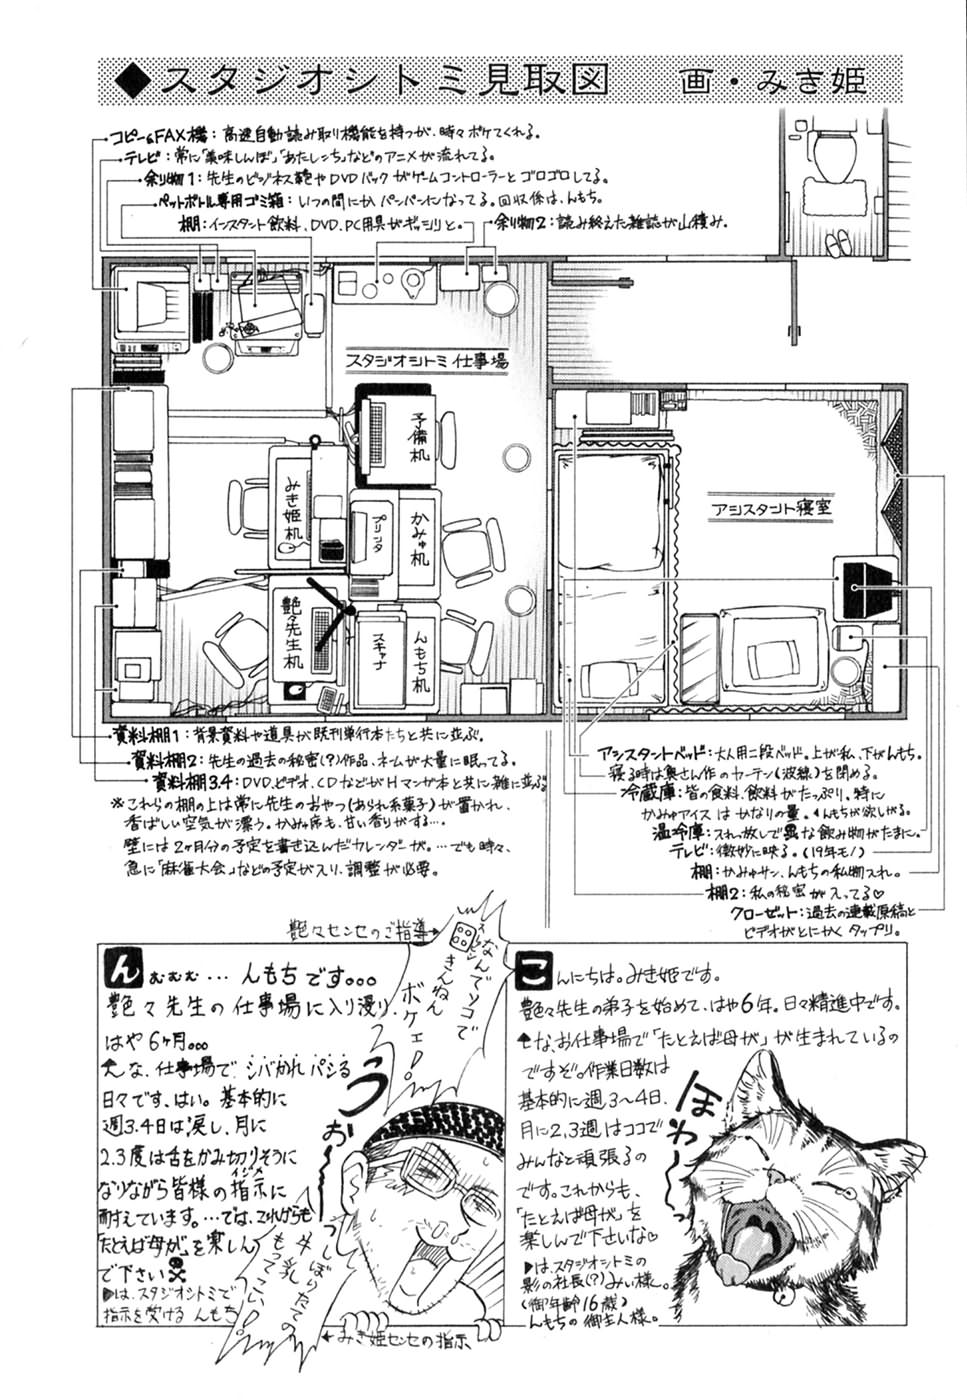 ◆スタジオシトミ見取図　画・みき姫
コピー&FAX機：高速自動読み取り機能を持つが、時々ボケてくれる。
テレビ：常に「美味しんぼ」「あたしンち」などのアニメが流れてる。
余り物1：先生のビジネス鞄やDVDパックがゲームコントローラーとゴロゴロしてる。
ペットボトル専用ゴミ箱：いつの間にかパンパンになってる。回収係は、んもち。
棚：インスタント飲料、DVD、PC用具がギッシリと。
余り物2：読み終えた雑誌が山積み。
スタジオシトミ仕事場
予備机
みき姫机
プリンタ
かみゅ机
艶々先生机
スキャナ
んもち机
アシスタント寝室
資料棚1：背景資料や道具が既刊単行本たちと共に並ぶ。
資料棚2：先生の過去の秘密(?)作品、ネームが大量に眠ってる。
資料棚3.4：DVD、ビデオ、CDなどがHマンガ本と共に雑に並ぶ
※これらの棚の上は常に先生のおやつ(あられ系菓子)が置かれ、
香ばしい空気が漂う。かみゅ席も、甘い香りがする…。
壁には2ヶ月分の予定を書き込んだカレンダーが。…でも時々、
急に「麻雀大会」などの予定が入り、調整が必要。
アシスタントベッド：大人用二段ベッド。上が私、下がんもち。
寝る時は奥さん作のカーテン(波線)を閉める。
冷蔵庫：皆の食料、飲料がたっぷり。特に
かみゅアイスはかなりの量。んもちが欲しがる。
温冷庫：スイッチれっ放しで
な飲み物がたまに。
テレビ：微妙に映る。(19年モノ)
棚：かみゅサン、んもちの私物入れ。
棚2：私の秘密が入ってる♡
クローゼット：過去の連載原稿と
ビデオがとにかくタップリ。
艶々センセのご指導→
なんでソコで
きんねん
ボケェ!
んむむむ…んもちです。。。
艶々先生の仕事場に入り浸り、
はや6ヶ月。。。
んな、仕事場でシバかれパシる
日々です、はい。基本的に
週3.4日は涙し、月に
2.3度は舌をかみ切りそうに
なりながら皆様の指示に
イジメ
耐えています。…では、これからも
「たとえば母が」を楽しん
で下さい☠
▶は、スタジオシトミで
指示を受けるんもち
うおーっ
しぼりたての
牛乳
もってこい!
←みき姫センセの指示
こんにちは。みき姫です。
艶々先生の弟子を始めて、はや6年。日々精進中です。
んな、お仕事場で「たとえば母が」が生まれているの
ですぞ。作業日数は
基本的に週3〜4日、
月に2、3週はココで
みんなと頑張るの
です。これからも、
「たとえば母が」を
楽しんで下さいな♡
▶は、スタジオシトミの
影の社長(?)みぃ様。
(御年齢16歳)
んもちの御主人様。
ほわ〜っ